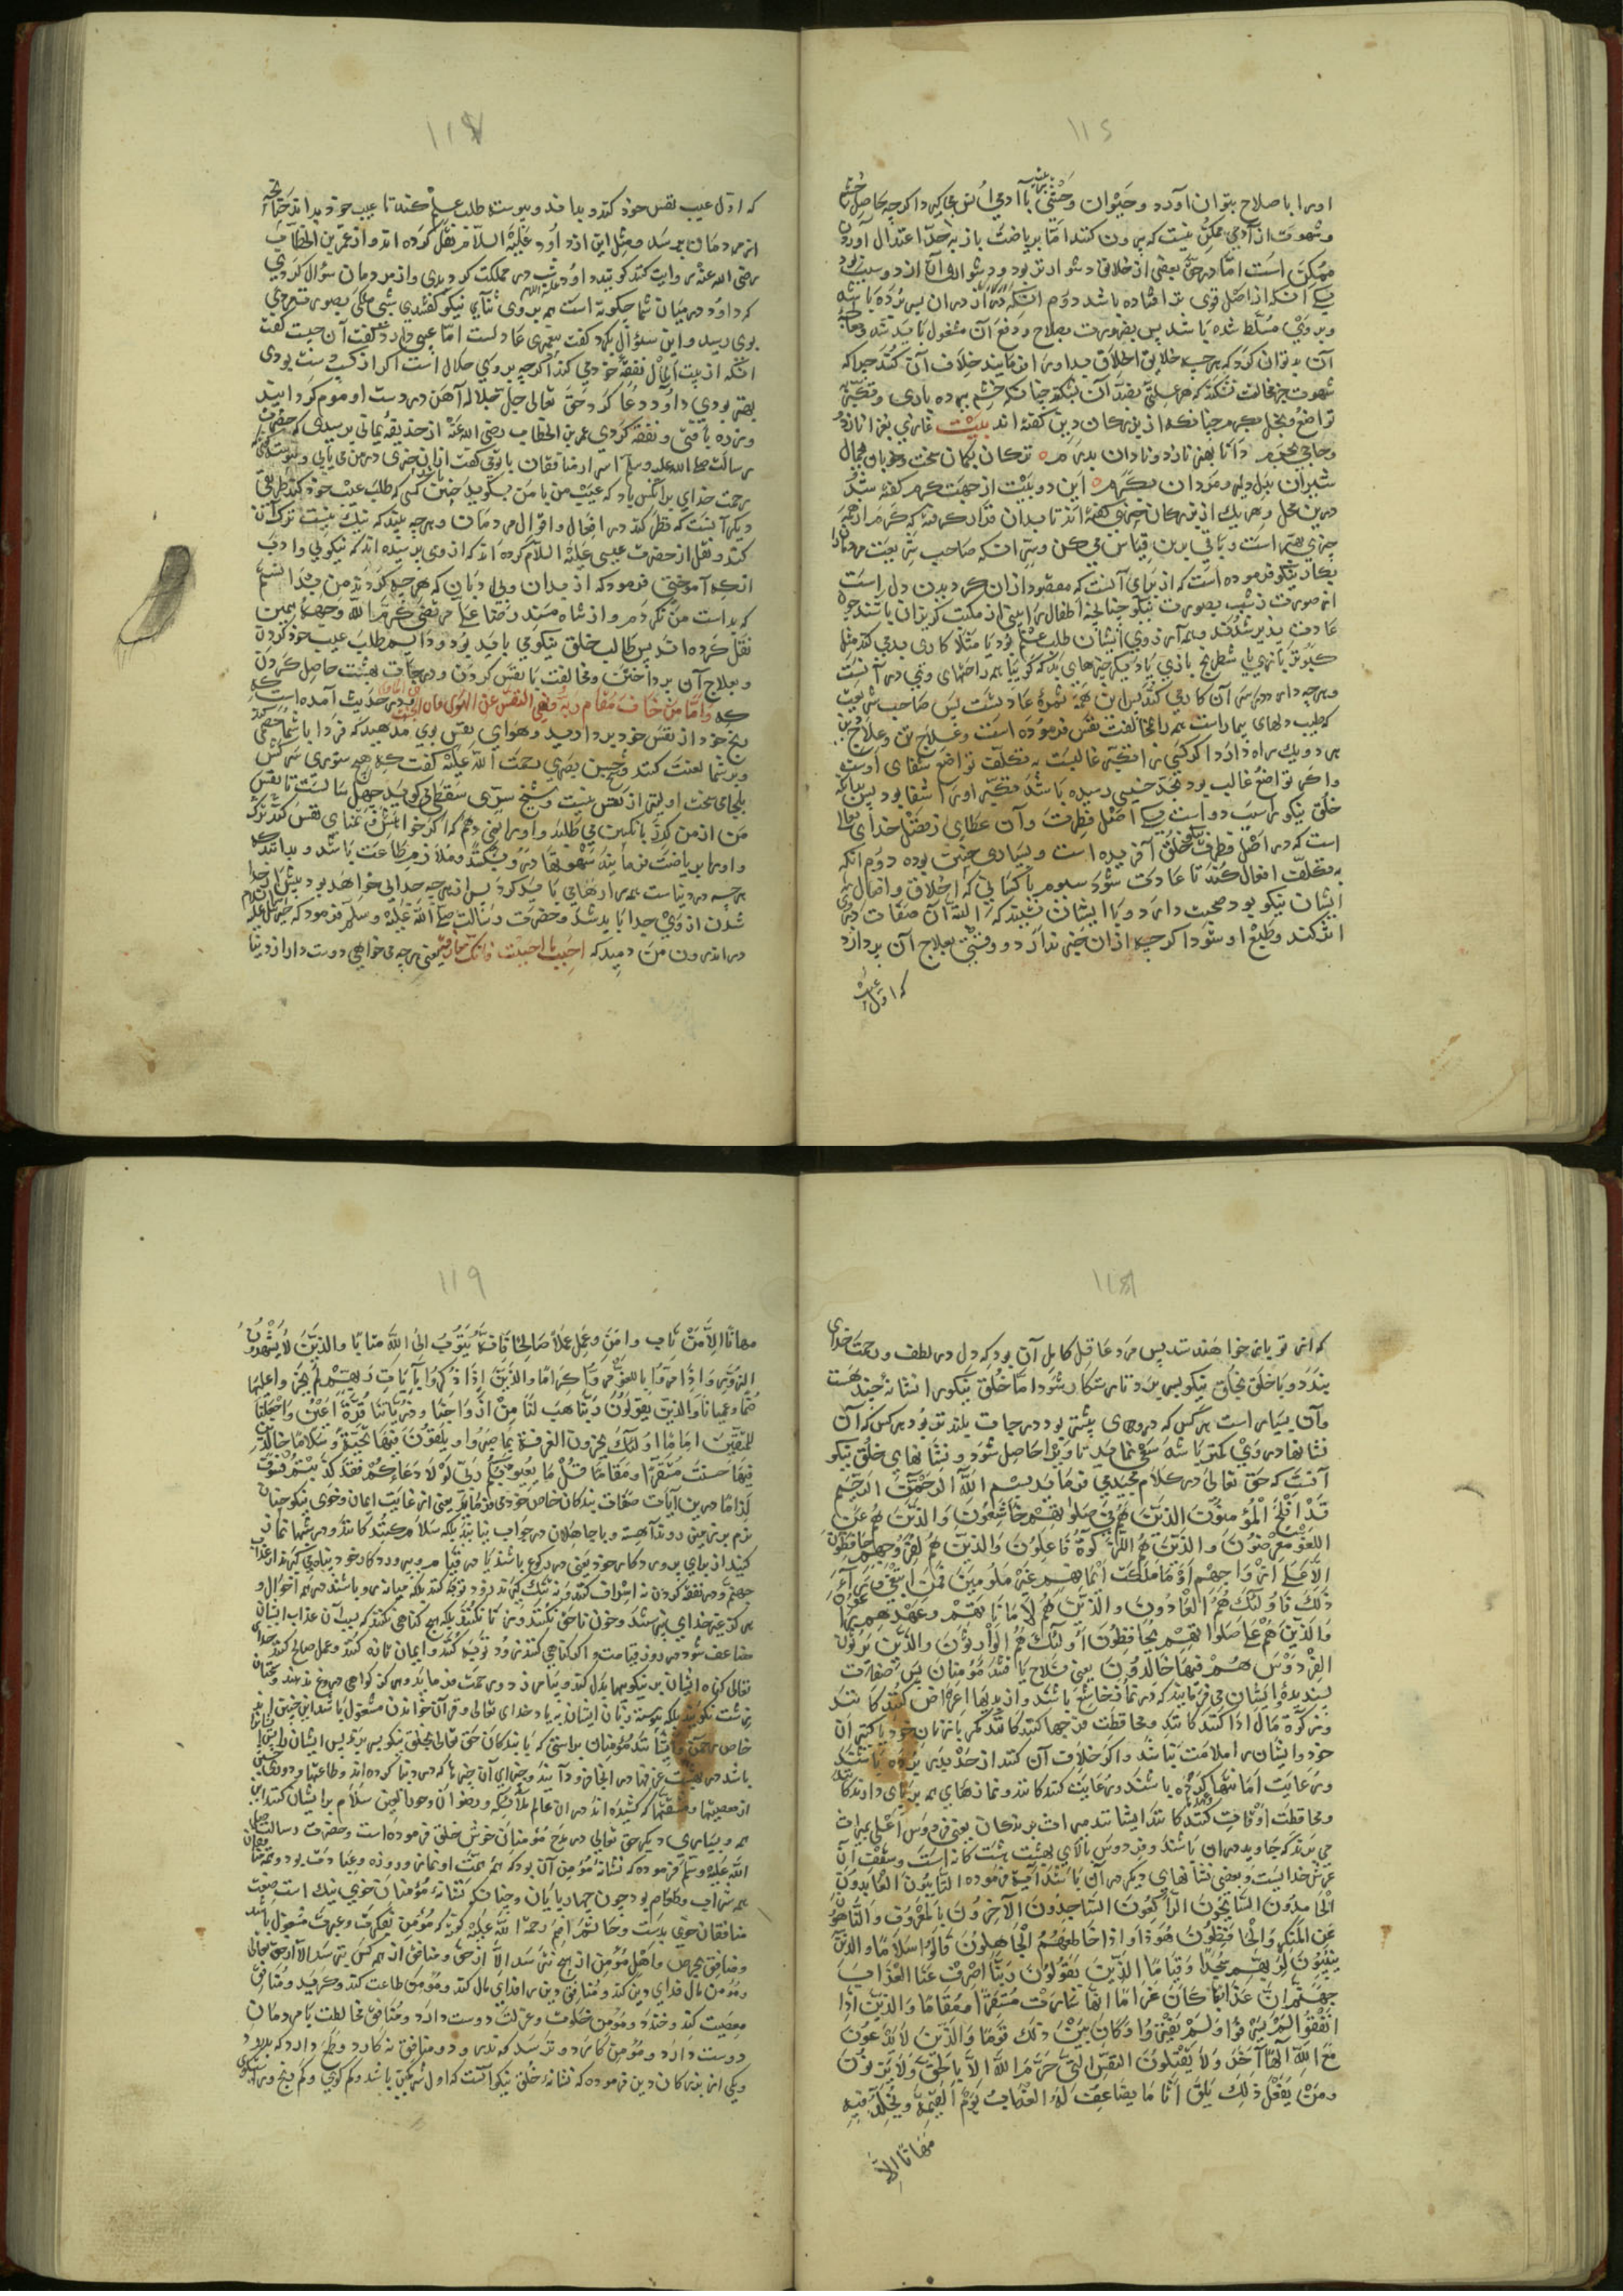 ١١٤
اورا با صلاح بتوان آورد و حیوان وحشی با آدمی اُنس می گیرد اکرچه حاصل خشم
و شهوت از آدمی ممکن نیست که بیرون کنند اما بریاضت باز بحد اعتدال آوردن
ممکن است اما در حق بعضی از خلایق دشوارتر بود و دشواری آن از دو سبب بود
یکی آنکه از اصل قوی تر افتاده باشد دوم آنکه در آن بسر برده باشد
و بر وی مسلط شده باشد پس بضرورت بصلاح و دفع آن مشغول باید شد
آن بد توان کرد که هرچه خلایق اخلاق بد اورا فرمایند خلاف آن کند چرا که
شهوت جز مخالفت نشکند که هر علتی بضد آن بشکند چنانکه خشم ببرده باری و تکبر
تواضع و بخل بکرم چنانکه از بزرکان دین کفته اند بیت غازی بغزا نازد
و حاجی بحرم دانا بهنر نازد و نادان بدرم ترکان بکمان سخت و خوبان بجمال
شیران بدل دلیر و مردان بکرم این دو بیت از جهت کرم کفته شد
درین محل و هر یک از بزرکان چیزی کفته اند تا بدان قرار کرفته که کرم از همه
چیزی بهتر است و باقی برین قیاس می کن و سر آنکه صاحب شریعت مردمان را
بکار نیکو فرموده است که از برای آنست که مقصود از ان کردیدن دل است
از صورت زشت بصورت نیکو چنانچه اطفال را بینی از مکتب کریزان باشند چون
عادت پذیر شدند و همه آرزوی ایشان طلب علم بود یا مثلا کاری بدی کند مثل
کبوتر بازی یا شطرنج بازی یا دیکر چیزهای بد که کویا همه راحتهای وی در آنست
و هرچه دارد در سر آن کار می کند پس این همه ثمره عادتست پس صاحب شریعت
که طبیب دلهای بیمار است همه را مخالفت نفس فرموده است و علاج تن و علاج دین
هر دو یک راه دارد اکر کسی را تکبر غالبست به تکلف تواضع شفای اوست
و اکر تواضع غالب بود بحد خسیسی رسیده باشد تکبر اورا شفا بود پس بدانکه
خلق نیکو را سبب دو است یکی اصل فطرت و آن عطای ز فضل خدای تعالی
است که در اصل فطرت نیکو خلق آفریده است و بسیاری چنین بوده دوم آنکه
به تکلف افعال کند تا عادت شود سیوم با کسانی که اخلاق و افعال
ایشان نیکو بود صحبت دارد و با ایشان نشیند که البته آن صفات در وی
اثر کند و طبع او شود اکرچه از ان خبر ندارد و وقتی بعلاج آن پردازد
که اول عیب
١١٧
که اول عیب نفس خود کند و بداند و پیوسته طلب علم کند تا عیب خود بداند
از مردمان بپرسد و مثل این از داود علیه السلام نقل کرده اند و از عمر بن الخطاب
رضی الله عنه روایت کنند کویند داود علیه السلام شب در مملکت کردیدی و از مردمان سؤال کردی
که داود در میان شما چکونه است همه بر وی ثنای نیکو کفتندی شبی ملکی بصورت مردی
بوی رسید و این سئوال بکرد کفت پیغمبری عادلست اما عیبی دارد کفت آن چیست کفت
آنکه از بیت المال نفقه خود می کند اکرچه بر وی حلال است اکر از کسب دست بودی
بهتر بودی داود دعا کرد حق تعالی جل جلاله آهن در دست او موم کردانید
و زره بافتی و نفقه کردی عمر بن الخطاب رضی الله عنه از حذیفه یمانی پرسیدی که حضرت
رسالت صلی الله علیه وسلم اسرار منافقان با تو می کفت از ان چیزی در من می یابی
رحمت خدای بر آنکس باد که عیب من با من بکوید چنین باشد کسی که طلب عیب خود کند طریق
دیکر آنست که نظر کند در افعال و اقوال مردمان و هرچه بیند که نیک نیست ترک آن
کند و نقل از حضرت عیسی علیه السلام کرده اند که از وی پرسیده اند که نیکویی و ادب
از که آموختی فرمود که از بدان و بی ادبان که هرچه کردند من بدانستم
که بد است من نکردم و از شاه مسند رضا علی مرتضی کرم الله وجهه همین
نقل کرده اند پس طالب خلق نیکو می باید بود و دایم طلب عیب خود کردن
و بعلاج آن پرداختن و مخالفت با نفس کردن و درجات بهشت حاصل کردن
که وَاَمَّا مَنْ خَافَ مَقَامَ رَبِّهِ وَنَهَى النَّفْسَ عَنِ الْهَوَى فَاِنَّ الْجَنَّةَ هِيَ الْمَأْوَى در حدیث آمده است که
رنج خود از نفس خود بردارید و هوای نفس بوی مدهید که فردا با شما خصمی کند
و بر شما لعنت کند و شیخ حسن بصری رحمت الله علیه کفت که هیچ ستوری سرکش
بلجام سخت اولیتر از نفس نیست و شیخ سری سقطی کوید چهل سالست تا نفس
من از من کرد بانکبین می طلبد و اورا نمی دهم اکر خواهش و تمنای نفس کند ترک
و اورا بریاضت فرماید شهوتها در وی بشکند و ملازم طاعت باشد و بداند که
هرچه در دنیاست همه را رها می باید کرد پس از هرچه جدایی خواهد بود پیش از ان
شدن از وی جدا باید شد و حضرت رسالت صلی الله علیه وسلم فرمود که جبرئیل علیه السلام
در اندرون من دمید که اَحْبِبْ ما اَحْبَبْتَ فَاِنَّكَ مُفارِقُه یعنی هرچه می خواهی دوست دار از دنیا
١١٨
که از تو باز خواهند ستد پس مرد عاقل کامل آن بود که دل در لطف و رحمت خدای
بندد و با خلق بخلق نیکو بسر برد تا رستکار شود اما خلق نیکو را نشانه چند هست
و آن بسیار است هرکس که در وی بیشتر بود درجات بلندتر بود هرکس که آن
نشانها در وی کمتر باشد سعی نماید تا وی را حاصل شود و نشانهای خلق نیکو
آنست که حق تعالی در کلام مجیدی فرماید بسم الله الرحمن الرحیم
قَدْ اَفْلَحَ الْمُؤْمِنُونَ الَّذِينَ هُمْ فِي صَلوٰتِهِمْ خَاشِعُونَ وَالَّذِينَ هُمْ عَنِ
اللَّغْوِ مُعْرِضُونَ وَالَّذِينَ هُمْ لِلزَّكَوةِ فَاعِلُونَ وَالَّذِينَ هُمْ لِفُرُوجِهِمْ حَافِظُونَ
اِلَّا عَلَى اَزْوَاجِهِمْ اَوْ مَا مَلَكَتْ اَيْمَانُهُمْ فَاِنَّهُمْ غَيْرُ مَلُومِينَ فَمَنِ ابْتَغَى وَرَاءَ
ذَلِكَ فَاُولَئِكَ هُمُ الْعَادُونَ وَالَّذِينَ هُمْ لِاَمَانَاتِهِمْ وَعَهْدِهِمْ رَاعُونَ
وَالَّذِينَ هُمْ عَلَى صَلَوَاتِهِمْ يُحَافِظُونَ اُولَئِكَ هُمُ الْوَارِثُونَ الَّذِينَ يَرِثُونَ
الْفِرْدَوْسَ هُمْ فِيهَا خَالِدُونَ یعنی فلاح یافتند مؤمنان پس صفات
پسندیدۀ ایشان می فرمایند که در نماز خاشع باشند و از بدیها اعراض کنندکانند
و زکوة مال ادا کنندکانند و محافظت فرجها کنندکانند مکر با زنان خود یا کنیزان
خود و ایشان را ملامت نباشد و اکر خلاف آن کنند از حد بدر برده باشند
و رعایت امانتها کرده باشند و رعایت کنندکانند و نمازهای همه بر پای دارندکانند
و محافظت اوقات کنندکانند ایشانند میراث برندکان یعنی فردوس اعلی میراث
می برند که جاوید در ان باشند و فردوس بالای بهشت هشت کانه است و سقف آن
عرش خدایست و بعضی نشانهای دیکر در آن باشند آیت فرموده التَّائِبُونَ الْعَابِدُونَ
الْحَامِدُونَ السَّائِحُونَ الرَّاكِعُونَ السَّاجِدُونَ الْآمِرُونَ بِالْمَعْرُوفِ وَالنَّاهُونَ
عَنِ الْمُنْكَرِ وَالْحَافِظُونَ هَوْنًا وَاِذَا خَاطَبَهُمُ الْجَاهِلُونَ قَالُوا سَلَامًا وَالَّذِينَ
يَبِيتُونَ لِرَبِّهِمْ سُجَّدًا وَقِيَامًا الَّذِينَ يَقُولُونَ رَبَّنَا اصْرِفْ عَنَّا عَذَابَ
جَهَنَّمَ اِنَّ عَذَابَهَا كَانَ غَرَامًا اِنَّهَا سَاءَتْ مُسْتَقَرًّا وَمُقَامًا وَالَّذِينَ اِذَا
اَنْفَقُوا لَمْ يُسْرِفُوا وَلَمْ يَقْتُرُوا وَكَانَ بَيْنَ ذَلِكَ قَوَامًا وَالَّذِينَ لَا يَدْعُونَ
مَعَ اللهِ اِلٰهًا آخَرَ وَلَا يَقْتُلُونَ النَّفْسَ الَّتِي حَرَّمَ اللهُ اِلَّا بِالْحَقِّ وَلَا يَزْنُونَ
وَمَنْ يَفْعَلْ ذَلِكَ يَلْقَ اَثَامًا يُضَاعَفْ لَهُ الْعَذَابُ يَوْمَ الْقِيٰمَةِ وَيَخْلُدْ فِيهِ
مُهَانًا اِلَّا
١١٩
مهانًا اِلَّا مَنْ تَابَ وَآمَنَ وَعَمِلَ عَمَلًا صَالِحًا فَاِنَّهُ يَتُوبُ اِلَى اللهِ مَتَابًا وَالَّذِينَ لَا يَشْهَدُونَ
الزُّورَ وَاِذَا مَرُّوا بِاللَّغْوِ مَرُّوا كِرَامًا وَالَّذِينَ اِذَا ذُكِّرُوا بِآيَاتِ رَبِّهِمْ لَمْ يَخِرُّوا عَلَيْهَا
صُمًّا وَعُمْيَانًا وَالَّذِينَ يَقُولُونَ رَبَّنَا هَبْ لَنَا مِنْ اَزْوَاجِنَا وَذُرِّيَّاتِنَا قُرَّةَ اَعْيُنٍ وَاجْعَلْنَا
لِلْمُتَّقِينَ اِمَامًا اُولَئِكَ يُجْزَوْنَ الْغُرْفَةَ بِمَا صَبَرُوا وَيُلَقَّوْنَ فِيهَا تَحِيَّةً وَسَلَامًا خَالِدِينَ
فِيهَا حَسُنَتْ مُسْتَقَرًّا وَمُقَامًا قُلْ مَا يَعْبَؤُ بِكُمْ رَبِّي لَوْلَا دُعَاؤُكُمْ فَقَدْ كَذَّبْتُمْ فَسَوْفَ
لِزَامًا درین آیات صفات بندکان خاص خود می فرماید یعنی از غایت ایمان و خوی نیکو چنان
نرم بر زمین روند آهسته و با جاهلان در جواب نیایند بلکه سلام کنندکانند و در شبها نماز
کنند از برای پروردکار خود یعنی در رکوع باشند یا در قیام و بپروردکار خود پناه می کیرند از عذاب
جهنم و در نفقه کردن نه اسراف کنند و نه تنک کیرند بلکه میانه رو باشند در همه احوال و
هرکز بغیر خدای نپرستند و خون ناحق نکنند و زنا نکنند بلکه هیچ کناهی نکنند که سبب آن عذاب ایشان
مضاعف شود در روز قیامت و اکر کناهی کنند زود توبه کنند و ایمان تازه کنند و عمل صالح کنند خدای
تعالی کناه ایشان به نیکوییها بدل کند و بسیار زود رحمت فرماید و هرکز کواهی دروغ ندهند و سخنان
زشت نکویند بلکه پیوسته زبان ایشان به یاد خدای تعالی و قرآن خواندن مشغول باشد این چنین اند
خاص رحمن و مؤمنان براستی که با بندکان حق تعالی بخلق نیکو بسر برند پس ایشان را چنین
باشد در بهشت غرفها در انجا فرود آیند و جزای آن چیزها که در دنیا کرده اند و طاعتها و دوری
از معصیتها و مشقتها که کشیده اند در ان عالم ملائکه و رضوان و حورالعین سلام بر ایشان کنند این
همه و بسیاری دیکر حق تعالی در مدح مؤمنان خوش خلق فرموده است و حضرت رسالت صلی
الله علیه وسلم فرموده که نشانه مؤمن آن بود که همه همت او نماز و روزه و عبادت بود و منافق را
همه شراب و طعام بود چون چهارپایان و چنانکه نشانه مؤمنان خوی نیک است صفت
منافقان خوی بدست و حاتم اصم رحمة الله علیه کوید که مؤمن بفکرت و عبرت مشغول باشد
و منافق بحرص و امل مؤمن از هیچ کس نترسد الا از حق و منافق از همه کس بترسد الا از حق تعالی
و مؤمن مال فدای دین کند و منافق دین را فدای مال کند و مؤمن طاعت کند و کرید و منافق
معصیت کند و خندد و مؤمن خلوت و عزلت دوست دارد و منافق مخالطت با مردمان
دوست دارد و مؤمن کارد و ترسد که ندرود و منافق نه کارد و طمع دارد که بدرود
و یکی از بزرکان دین فرموده که نشانه خلق نیکو آنست که اول شرمکین باشد و کم کوی و کم رنج و راستکوی